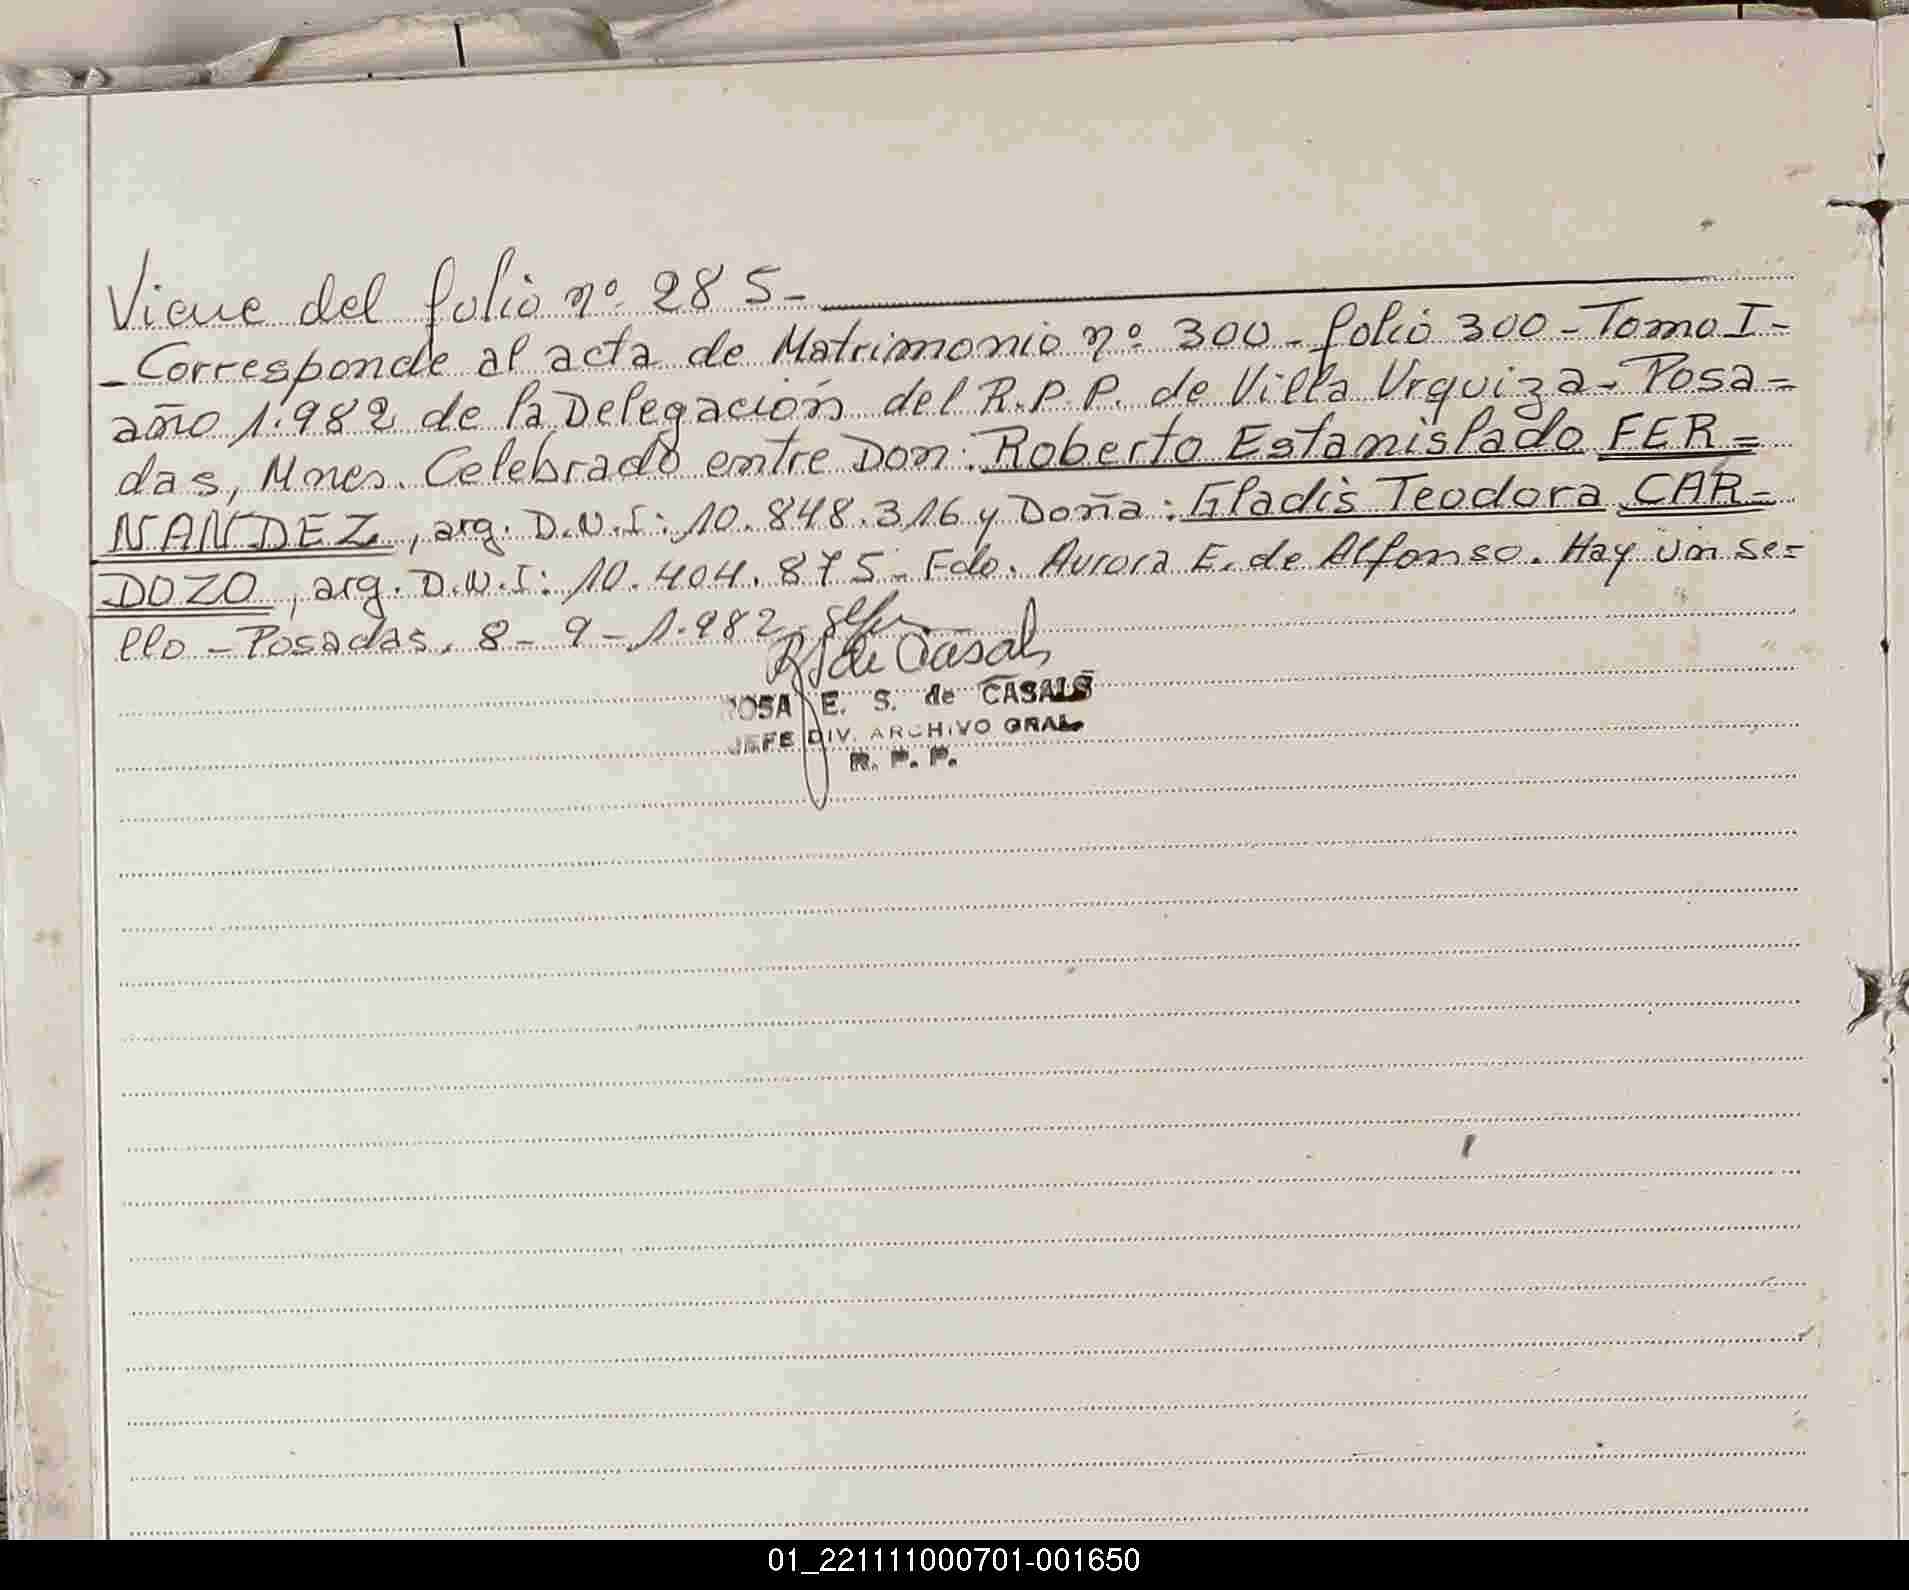 Viene del folio nº 285-
- Corresponde al acta de Matrimonio nº 300 - folio 300 - Tomo I -
año 1.982 de la Delegación del R.P.P. de Villa Urquiza - Posa=
das, Mnes. Celebrado entre Don: Roberto Estanislado FER=
NANDEZ, arg. D.N.I: 10.848.316 y Doña: Gladis Teodora CAR=
DOZO, arg. D.N.I: 10.404.875 - Fdo. Aurora E. de Alfonso. Hay un se=
llo - Posadas, 8-9-1.982-
de Casals
ROSA E. S. de CASALS
JEFE DIV. ARCHIVO GRAL.
R. P. P.
01_221111000701-001650